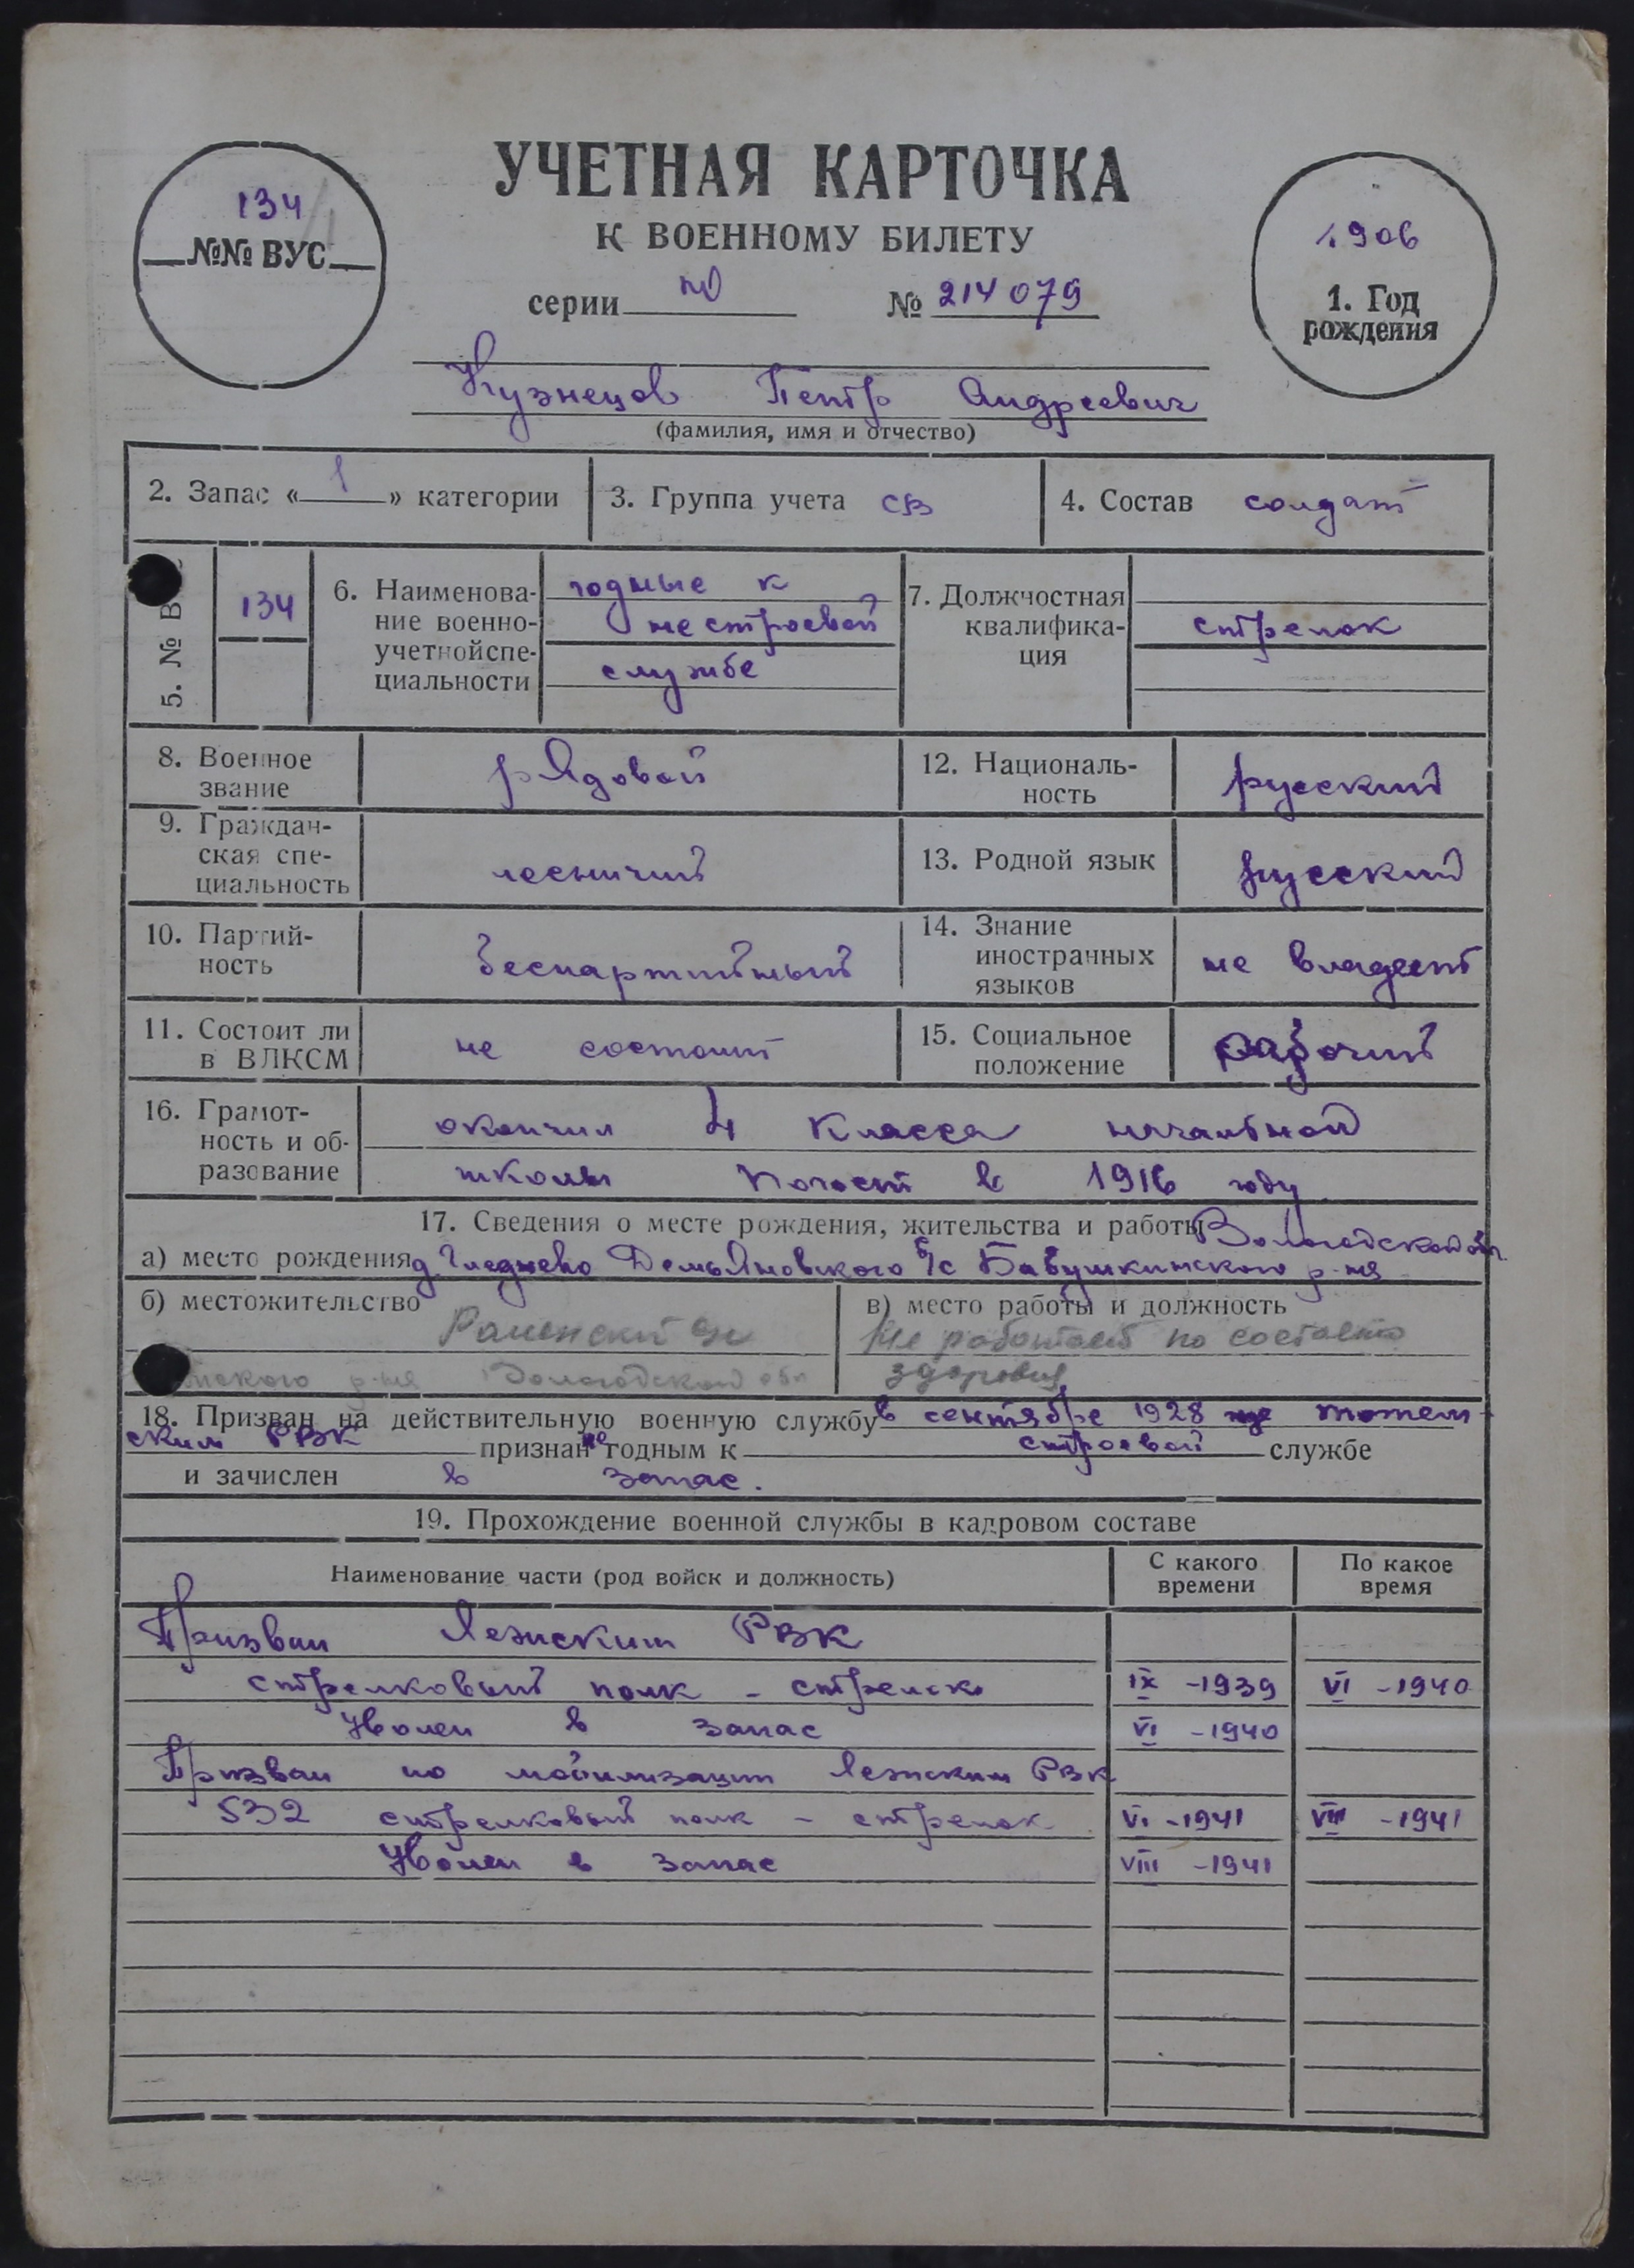 УЧЕТНАЯ КАРТОЧКА
К ВОЕННОМУ БИЛЕТУ
134
№№ ВУС
1906
1. Год рождения
серии № 214079
Кузнецов Петр Андреевич
(фамилия, имя и отчество)
2. Запас « 1 » категории
3. Группа учета СВ
4. Состав солдат
5. № В
134
6. Наименова-
ние военно-
учетнойспе-
циальности
годные к
нестроевой
службе
7. Должностная
квалифика-
ция
стрелок
8. Военное
звание
рядовой
12. Националь-
ность
русский
9. Граждан-
ская спе-
циальность
лесничий
13. Родной язык
русский
10. Партий-
ность
беспартийный
14. Знание
иностранных
языков
не владеет
11. Состоит ли
в ВЛКСМ
не состоит
15. Социальное
положение
рабочий
16. Грамот-
ность и об-
разование
окончил 4 класса начальной
школы Погост в 1916 году
17. Сведения о месте рождения, жительства и работы Вологодской обл
а) место рождения д. Демьяновского с/с Бабушкинского р-на
б) местожительство
Раменский
р-на Вологодской обл
в) место работы и должность
Не работает по состоянию
здоровья
18. Призван на действительную военную службу в сентябре 1928 Тотем-
ским РВК признан не годным к строевой службе
и зачислен в запас.
19. Прохождение военной службы в кадровом составе
Наименование части (род войск и должность)
С какого
времени
По какое
время
Призван Лежским РВК
стрелковый полк - стрелок IX - 1939 VI - 1940
Уволен в запас VI - 1940
Призван по мобилизации Лежским РВК
532 стрелковый полк - стрелок VI - 1941 VIII - 1941
Уволен в запас VIII - 1941